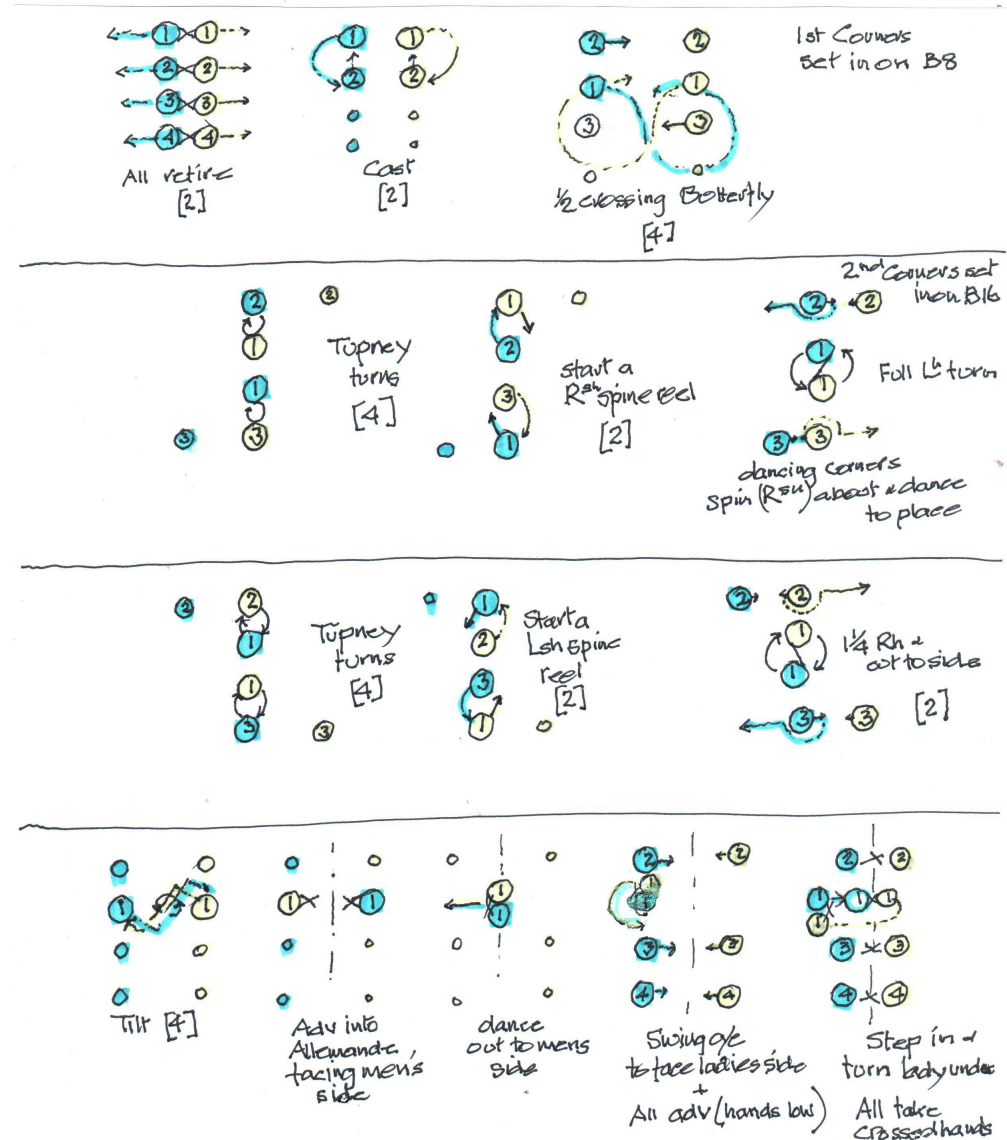 1 1
2 2
3 3
4 4
All retire
[2]
1 1
2 2
Cast
[2]
2 2
1 1
3 3
½ crossing Butterfly
[4]
1st Corners
set in on B8
2 2
1
1
3 3
Tupney
turns
[4]
1
2
3
1
start a
Rsh spine reel
[2]
2nd Corners set
in on B16
2 2
1
1
Full Lh turn
3 3
dancing corners
spin (Rsh) about & dance
to place
2 2
1
1
3 3
Tupney
turns
[4]
1
2
3
1
Start a
Lsh spine
reel
[2]
2 2
1
1
1¼ Rh &
out to side
[2]
3 3
1 1
Tilt [4]
1 1
Adv into
Allemande,
facing mens
side
1
1
dance
out to mens
side
2 2
1
1
3 3
4 4
Swing o/e
to face ladies side
+
All adv (hands low)
2 2
1 1 1
1
3 3
4 4
Step in &
turn lady under
All take
crossed hands